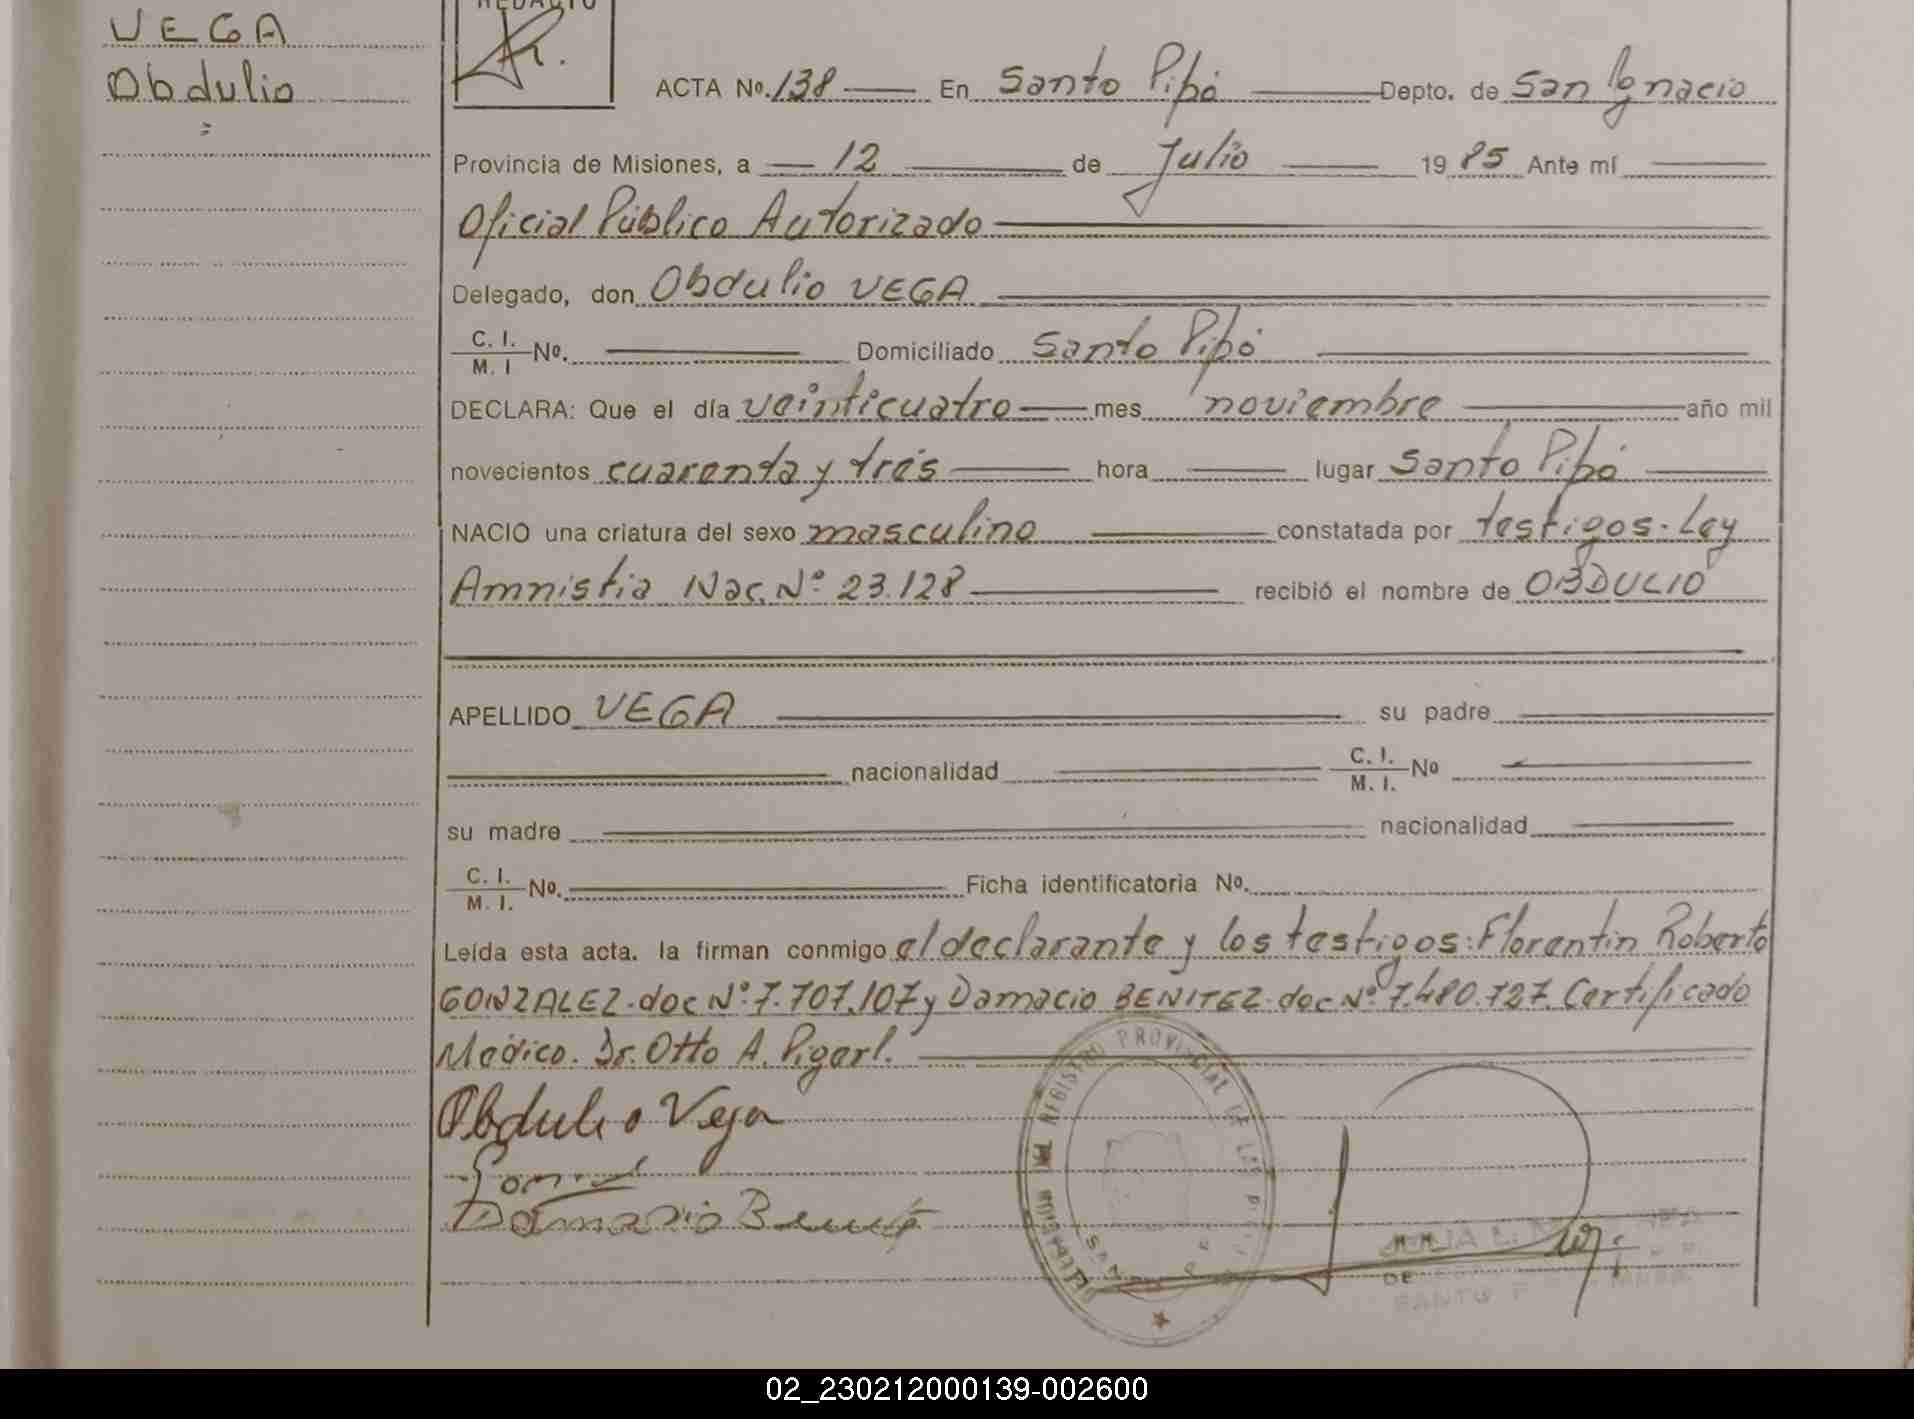 VEGA
Obdulio
=
REDACTO
ACTA Nº. 138 En Santo Pipó Depto. de San Ignacio
Provincia de Misiones, a 12 de Julio 1985 Ante mí
Oficial Público Autorizado
Delegado, don Obdulio VEGA
C. I. / M. I Nº. Domiciliado Santo Pipó
DECLARA: Que el día veinticuatro mes noviembre año mil
novecientos cuarenta y trés hora lugar Santo Pipó
NACIO una criatura del sexo masculino constatada por testigos. Ley
Amnistia Nac. Nº 23.128 recibió el nombre de OBDULIO
APELLIDO VEGA su padre
nacionalidad C. I. / M. I. Nº
su madre nacionalidad
C. I. / M. I. Nº. Ficha identificatoria Nº.
Leída esta acta. la firman conmigo el declarante y los testigos: Florentin Roberto
GONZALEZ. doc Nº 7.707.107 y Damacio BENITEZ. doc Nº 7.480.727. Certificado
Medico. Dr. Otto A. Pigerl.
Obdulio Vega
Damasio
REGISTRO PROVINCIAL DE LAS
SANTO
JULIA
DE
SANTO
02_230212000139-002600